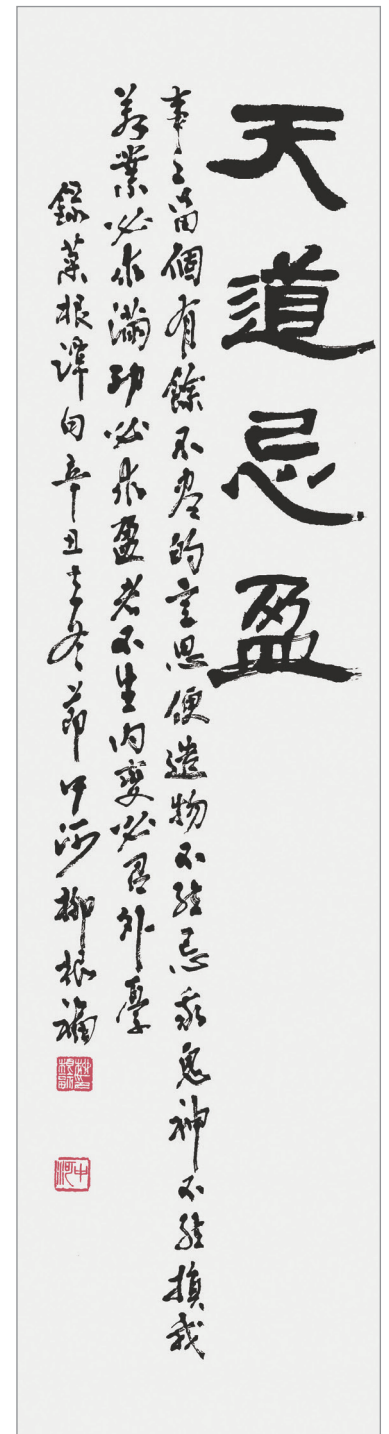 天道忌盈
事々留個有餘不盡的意思便造物不能忌我鬼神不能損我
若業必求滿功必求盈者不生內變必召外憂
錄菜根譚句辛丑立冬節中河柳根福
中河